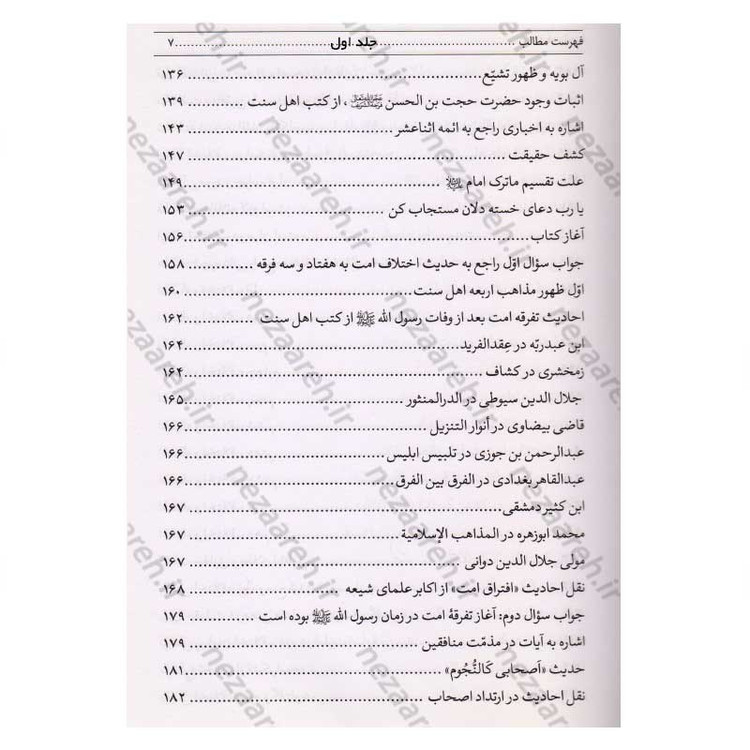 فهرست مطالب ........................ جلد اول ........................ ۷
آل بویه و ظهور تشیّع ........................ ۱۳۶
اثبات وجود حضرت حجت بن الحسن ، از کتب اهل سنت ............ ۱۳۹
اشاره به اخباری راجع به ائمه اثناعشر ........................ ۱۴۳
کشف حقیقت ........................ ۱۴۷
علت تقسیم ماترک امام ........................ ۱۴۹
یا رب دعای خسته دلان مستجاب کن ........................ ۱۵۳
آغاز کتاب ........................ ۱۵۶
جواب سؤال اوّل راجع به حدیث اختلاف امت به هفتاد و سه فرقه ............ ۱۵۸
اوّل ظهور مذاهب اربعه اهل سنت ........................ ۱۶۰
احادیث تفرقه امت بعد از وفات رسول الله ﷺ از کتب اهل سنت ............ ۱۶۲
ابن عبدربّه در عِقدالفرید ........................ ۱۶۴
زمخشری در کشاف ........................ ۱۶۴
جلال الدین سیوطی در الدرالمنثور ........................ ۱۶۵
قاضی بیضاوی در أنوار التنزیل ........................ ۱۶۶
عبدالرحمن بن جوزی در تلبیس ابلیس ........................ ۱۶۶
عبدالقاهر بغدادی در الفرق بین الفرق ........................ ۱۶۶
ابن کثیر دمشقی ........................ ۱۶۷
محمد ابوزهره در المذاهب الإسلامیة ........................ ۱۶۷
مولی جلال الدین دوانی ........................ ۱۶۷
نقل احادیث «افتراق امت» از اکابر علمای شیعه ........................ ۱۶۸
جواب سؤال دوم: آغاز تفرقهٔ امت در زمان رسول الله ﷺ بوده است ............ ۱۷۹
اشاره به آیات در مذمّت منافقین ........................ ۱۷۹
حدیث «اَصحابی کَالنُّجُوم» ........................ ۱۸۱
نقل احادیث در ارتداد اصحاب ........................ ۱۸۲
nezaareh.ir